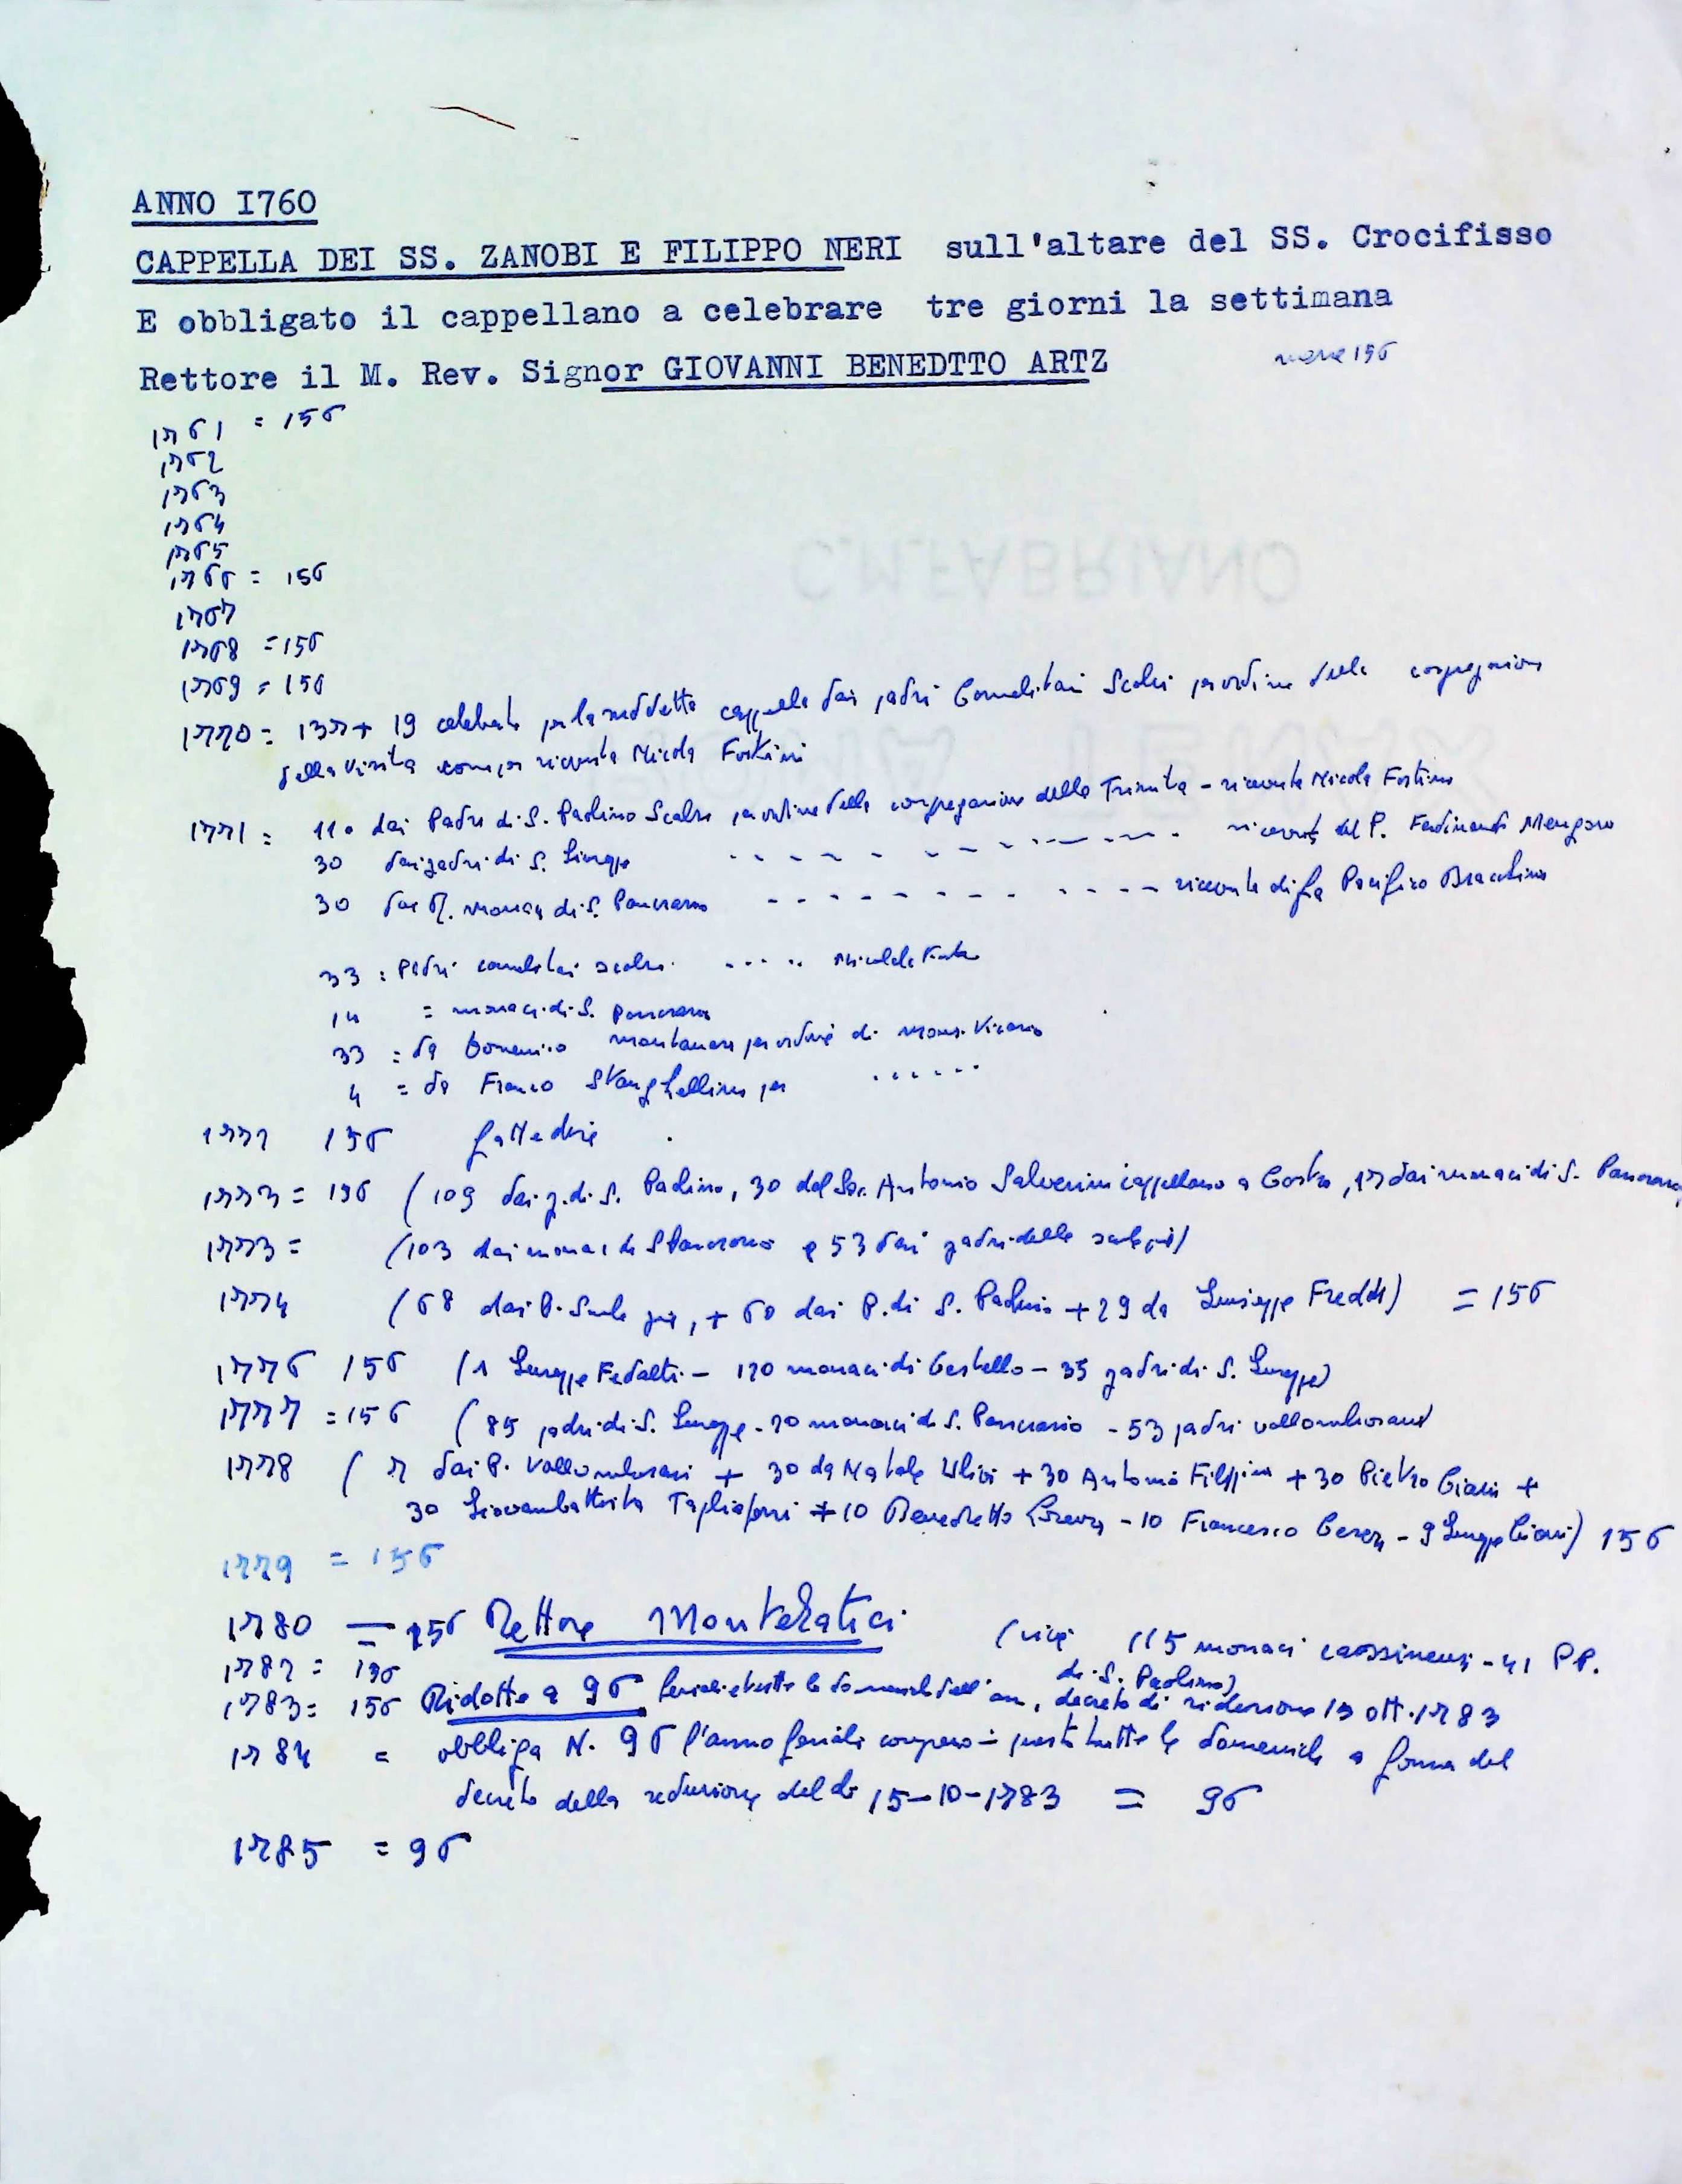 ANNO I760
CAPPELLA DEI SS. ZANOBI E FILIPPO NERI sull'altare del SS. Crocifisso
E obbligato il cappellano a celebrare tre giorni la settimana
Rettore il M. Rev. Signor GIOVANNI BENEDTTO ARTZ
1761 = 156
1762
1763
1764
1765
1766 = 156
1767
1768 = 156
1769 = 156
C.M.FABRIANO
1770 = 137 + 19 celebrate per la suddetta cappella dai padri Carmelitani Scalzi per ordine della congregazione
della visita come per ricevuta Nicola Fortini
1771 = 110 dai Padri di S. Paolino Scalzi per ordine della congregazione della - ricevuta Nicola Fortini
30 dai padri di S. Giuseppe - - - - - - - - - ricevuta del P. Ferdinando
30 dai monaci di S. Pancrazio - - - - - - - - - - - ricevuta di
33 = Padri carmelitani scalzi .....
14 = monaci di S. Pancrazio
33 = da Domenico per ordine di mons. Vicario
4 = da Franco Stanghellini per ......
156
= 156 (109 dai p. di S. Paolino, 30 del Antonio Salverini cappellano a 17 dai monaci di S. Pancrazio
1773 = (103 dai monaci di S Pancrazio e 53 dai padri delle scole pie)
1774 (68 dai P. Scole pie, + 60 dai P. di S. Paolino + 29 da Giuseppe Freddi) = 156
1776 156 (1 Giuseppe Fedalti - 120 monaci di Cestello - 35 padri di S. Giuseppe)
1777 = 156 (85 padri di S. Giuseppe - 20 monaci di S. Pancrazio - 53 padri vallombrosani
1778 (7 dai P. Vallombrosani + 30 da Natale Ulivi + 30 Antonio Filippini + 30 Pietro Ciani +
30 Giovambattista Tagliaferri + 10 Benedetto - 10 Francesco - 9 Giuseppe Ciani) 156
1779 = 156
1780 = 156 Rettore Montelatici (cioè 115 monaci cassinensi - 41 PP.
di S. Paolino)
1782 = 156
1783 = 156 Ridotte a 96 feriali e tutte le domeniche dell'an, decreto di riduzione 15 ott. 1783
1784 = obbliga N. 96 l'anno feriali compreso in tutte le domeniche a forma del
decreto della reduzione del dì 15-10-1783 = 96
1785 = 96